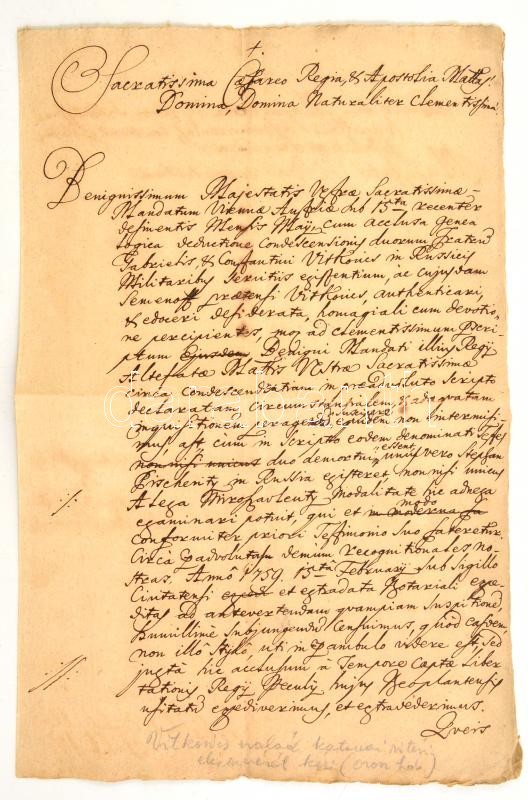 Sacratissima Caesareo Regia, & Apostolia Mattas!
Domina, Domina Naturaliter Clementissima!
Benignissimum Majestatis Vestrae Sacratissimae
Mandatum Viennae Austriae sub 15ta recenter
defluentis Mensis Maij, cum acclusa Genea
logica deductione Condescensionis duorum Fratrum
Gabrielis & Constantini Vitkovics in Russicis
Militaribus Servitiis existentium, ac cujusdam
Semenoff praetensi Vitkovics, authenticari,
& edoceri desiderata, homagiali cum devotio
ne percipientes, mox ad clementissimum Perci
ptum Ejusdem Benigni Mandati illius Regij
Altefatae Mattis Vestrae Sacratissimae
circa Condescendentiam in praeadvoluto Scripto
declaratam, circumstantialem, & adaequatam
inquisitionem peragere equidem non intermisi
mus, ast cum in Scripto eodem denominati Testes
non nisi unicus duo demortui essent, unus vero Stephan
Pischevity in Russia existeret, non nisi unicus
Alexa Miroslavlevity modalitate hic adnexa
examinari potuit, qui et modo
conformiter priori Testimonio suo fateretur.
Circa advolutam demum recognitionales no
stras Anno 1759. 15ta February sub Sigillo
Civitatensi et extradata Notariali expe
ditas ad antevertendam quampiam Suspitionem,
humillime subjungendum Censuimus, quod easdem
non illo Stylo, uti in Pambulo videre est, sed
juxta hic acclusum à Tempore Captae Liber
tationis Regij Peculij hujus Neoplantensis
usitatum expediverimus, et extradederimus.
Qveis
Vitkovics család katonai
(orosz
darabanth